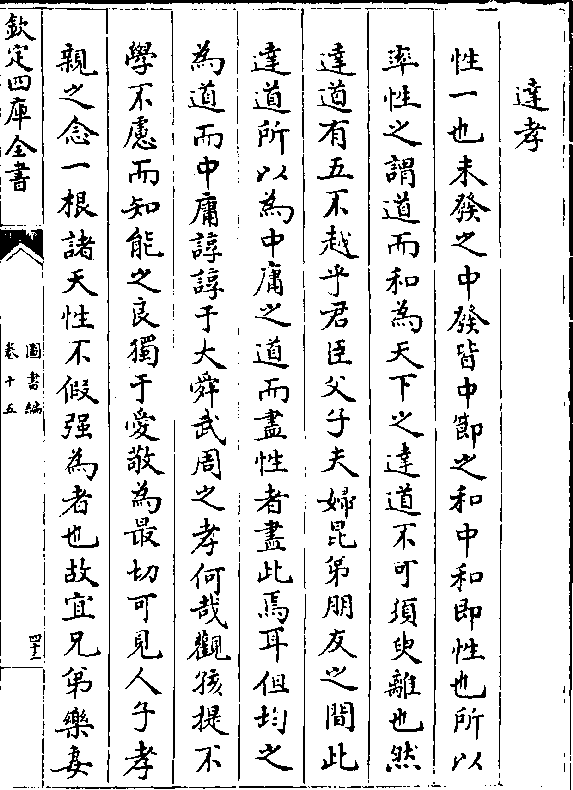 達孝
性一也未發之中發皆中節之和中和即性也所以
率性之謂道而和為天下之達道不可須臾離也然
達道有五不越乎君臣父子夫婦昆弟朋友之間此
達道所以為中庸之道而盡性者盡此焉耳但均之
為道而中庸諄諄于大舜武周之孝何哉觀孩提不
學不慮而知能之良獨于愛敬為最切可見人子孝
親之念一根諸天性不假强為者也故宜兄弟樂妻
欽定四庫全書
圖書編
卷十五
四十二